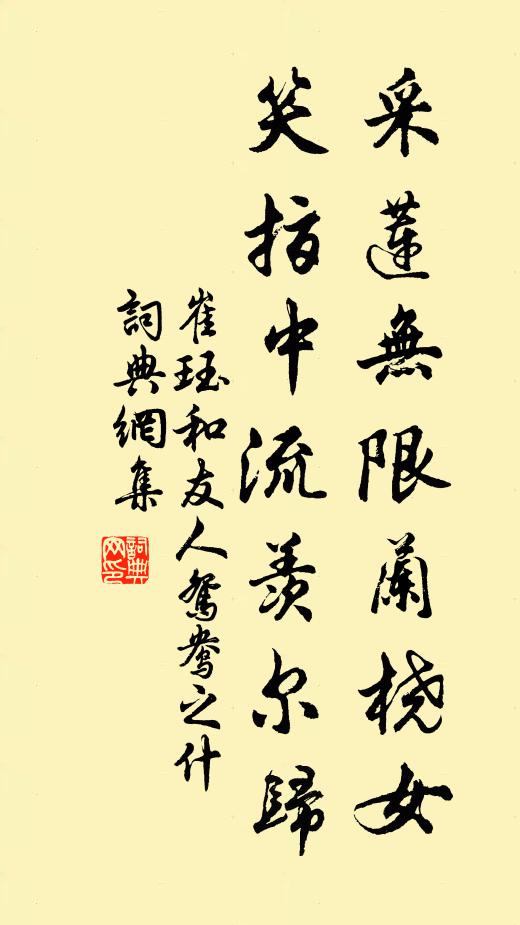 采蓮無限蘭橈女
笑指中流羨尔歸
崔珏和友人鴛鴦之什
詞典網集
詞典
网印